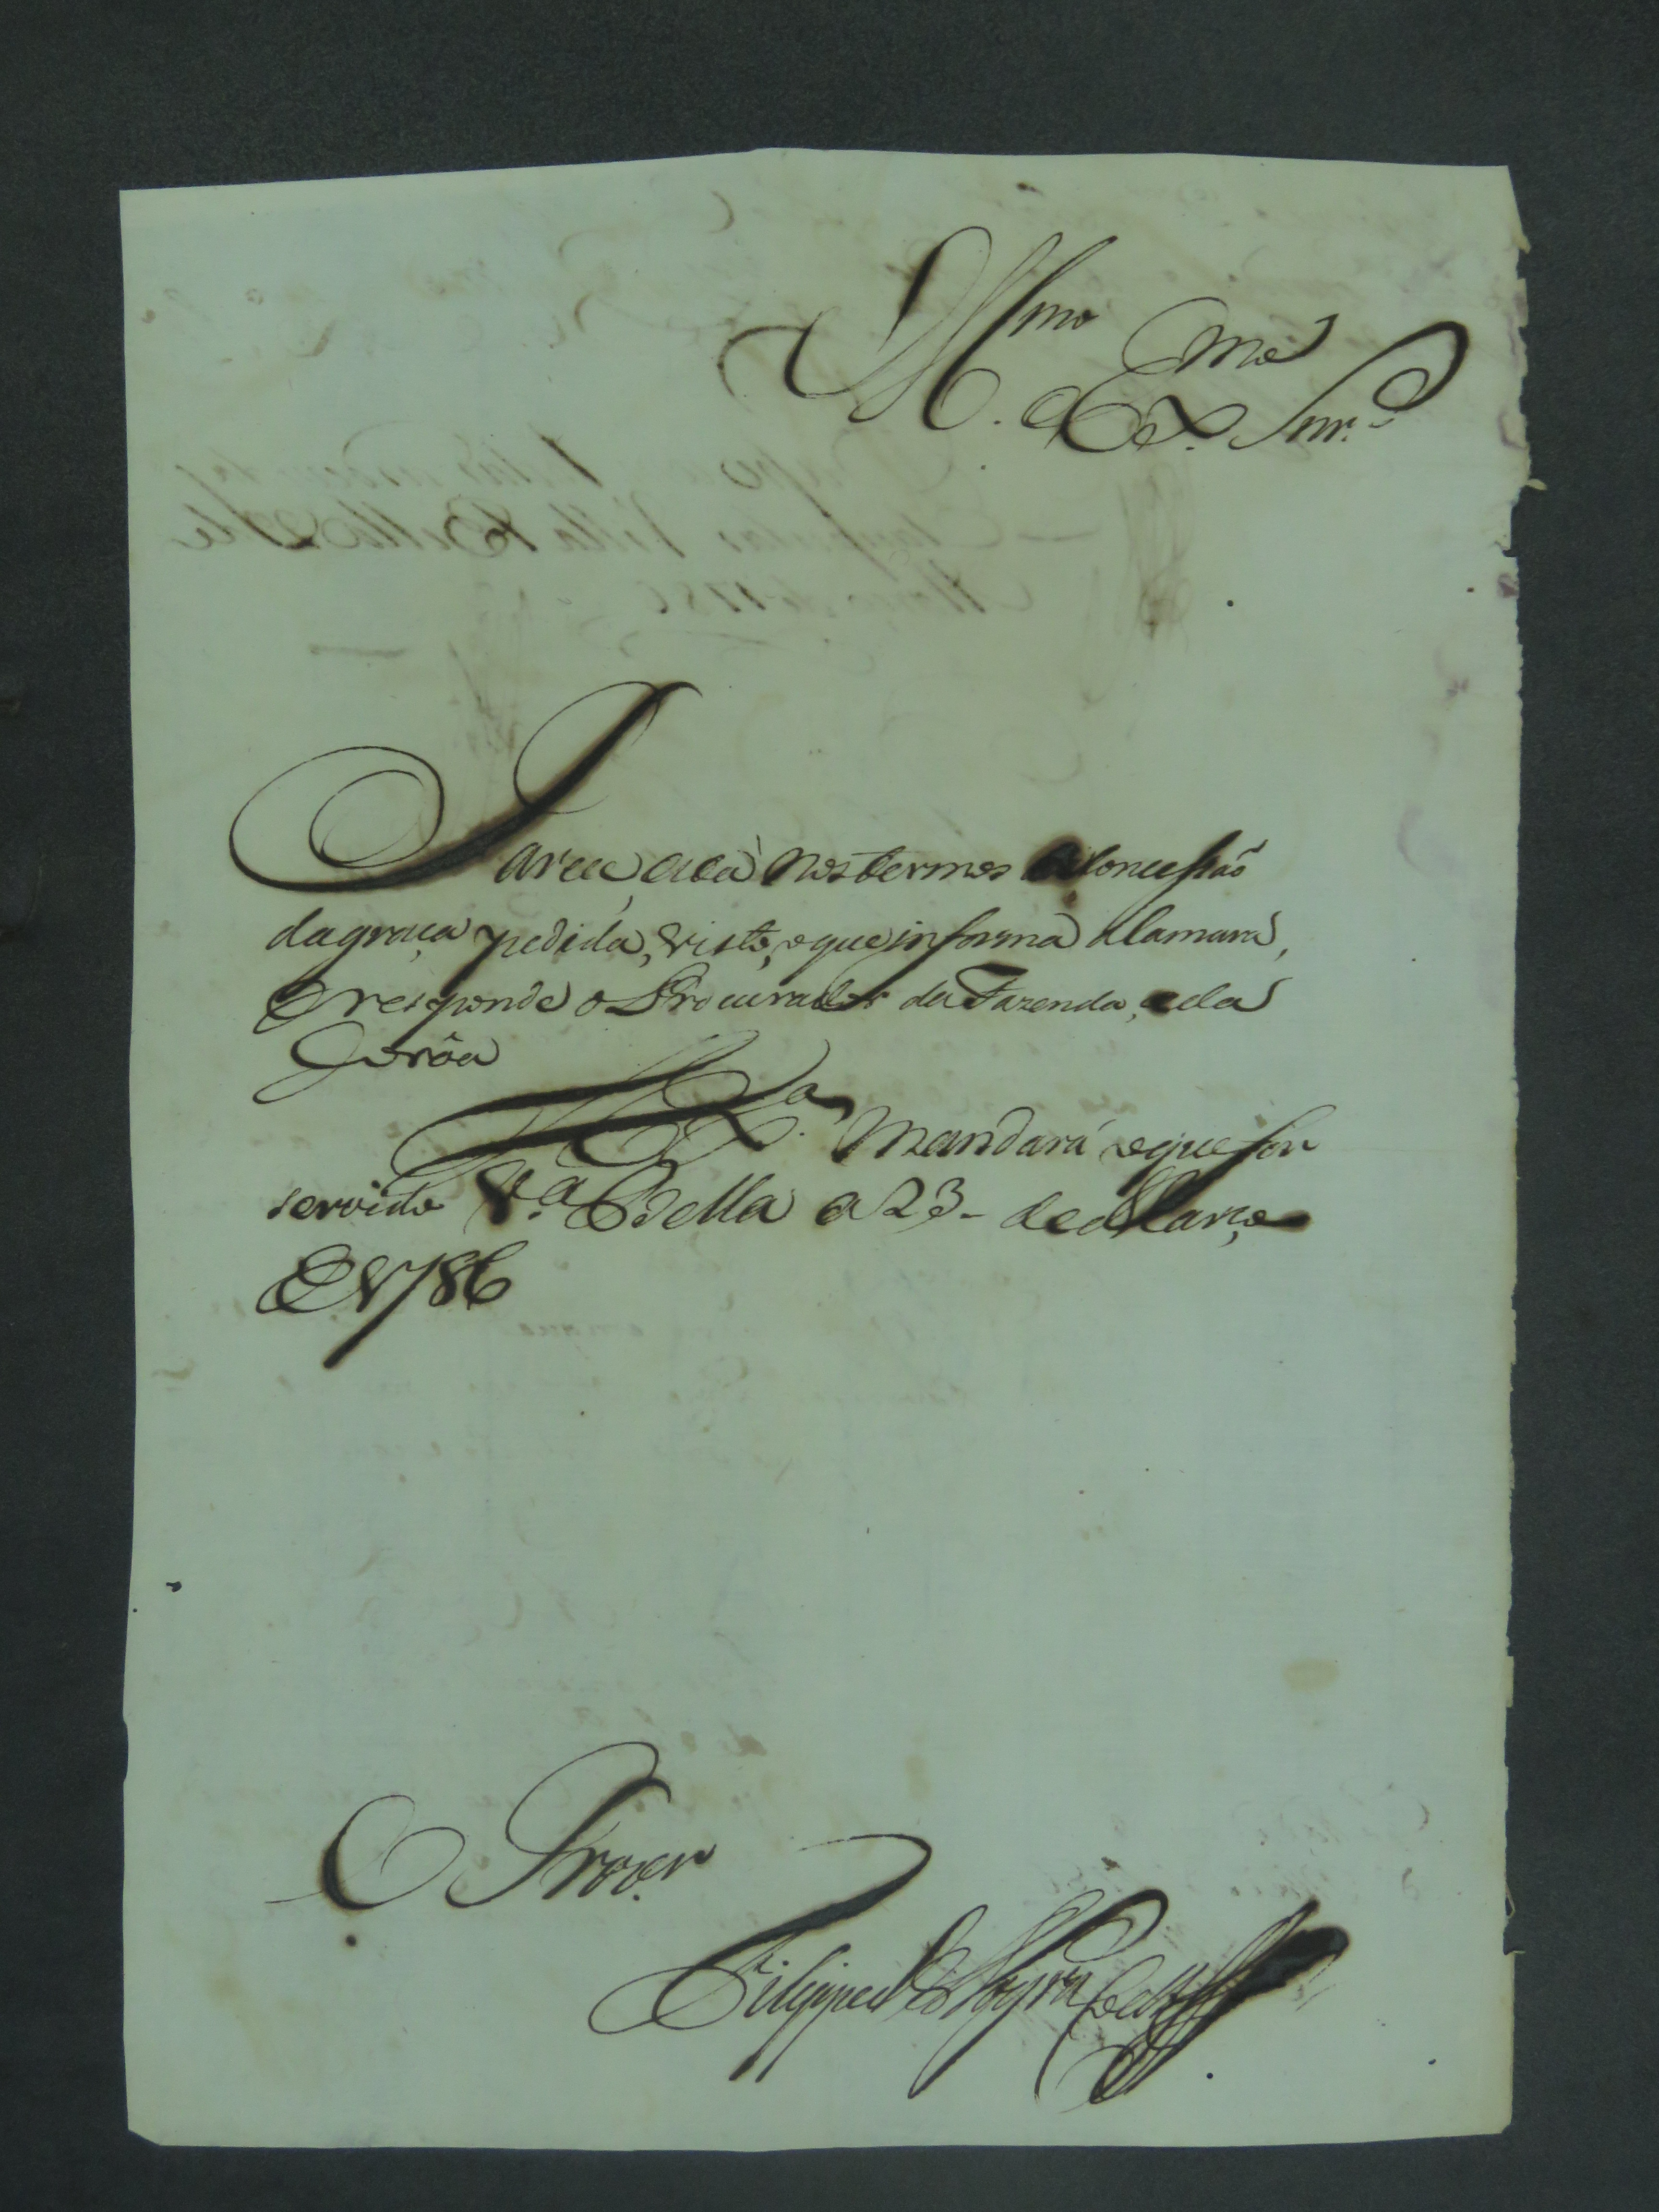 Illmo. e Exmo. Snr.
Parece está nos termos a Concessaõ
da graça pedida, visto, o que informa a Camara,
e responde o Procurador da Fazenda, e da
Corôa
V. Exa. Mandará o que for
servido Va. Bella a 23 de Março
de 1786
O Provor.
Filippe Joze Nogra. Coelho